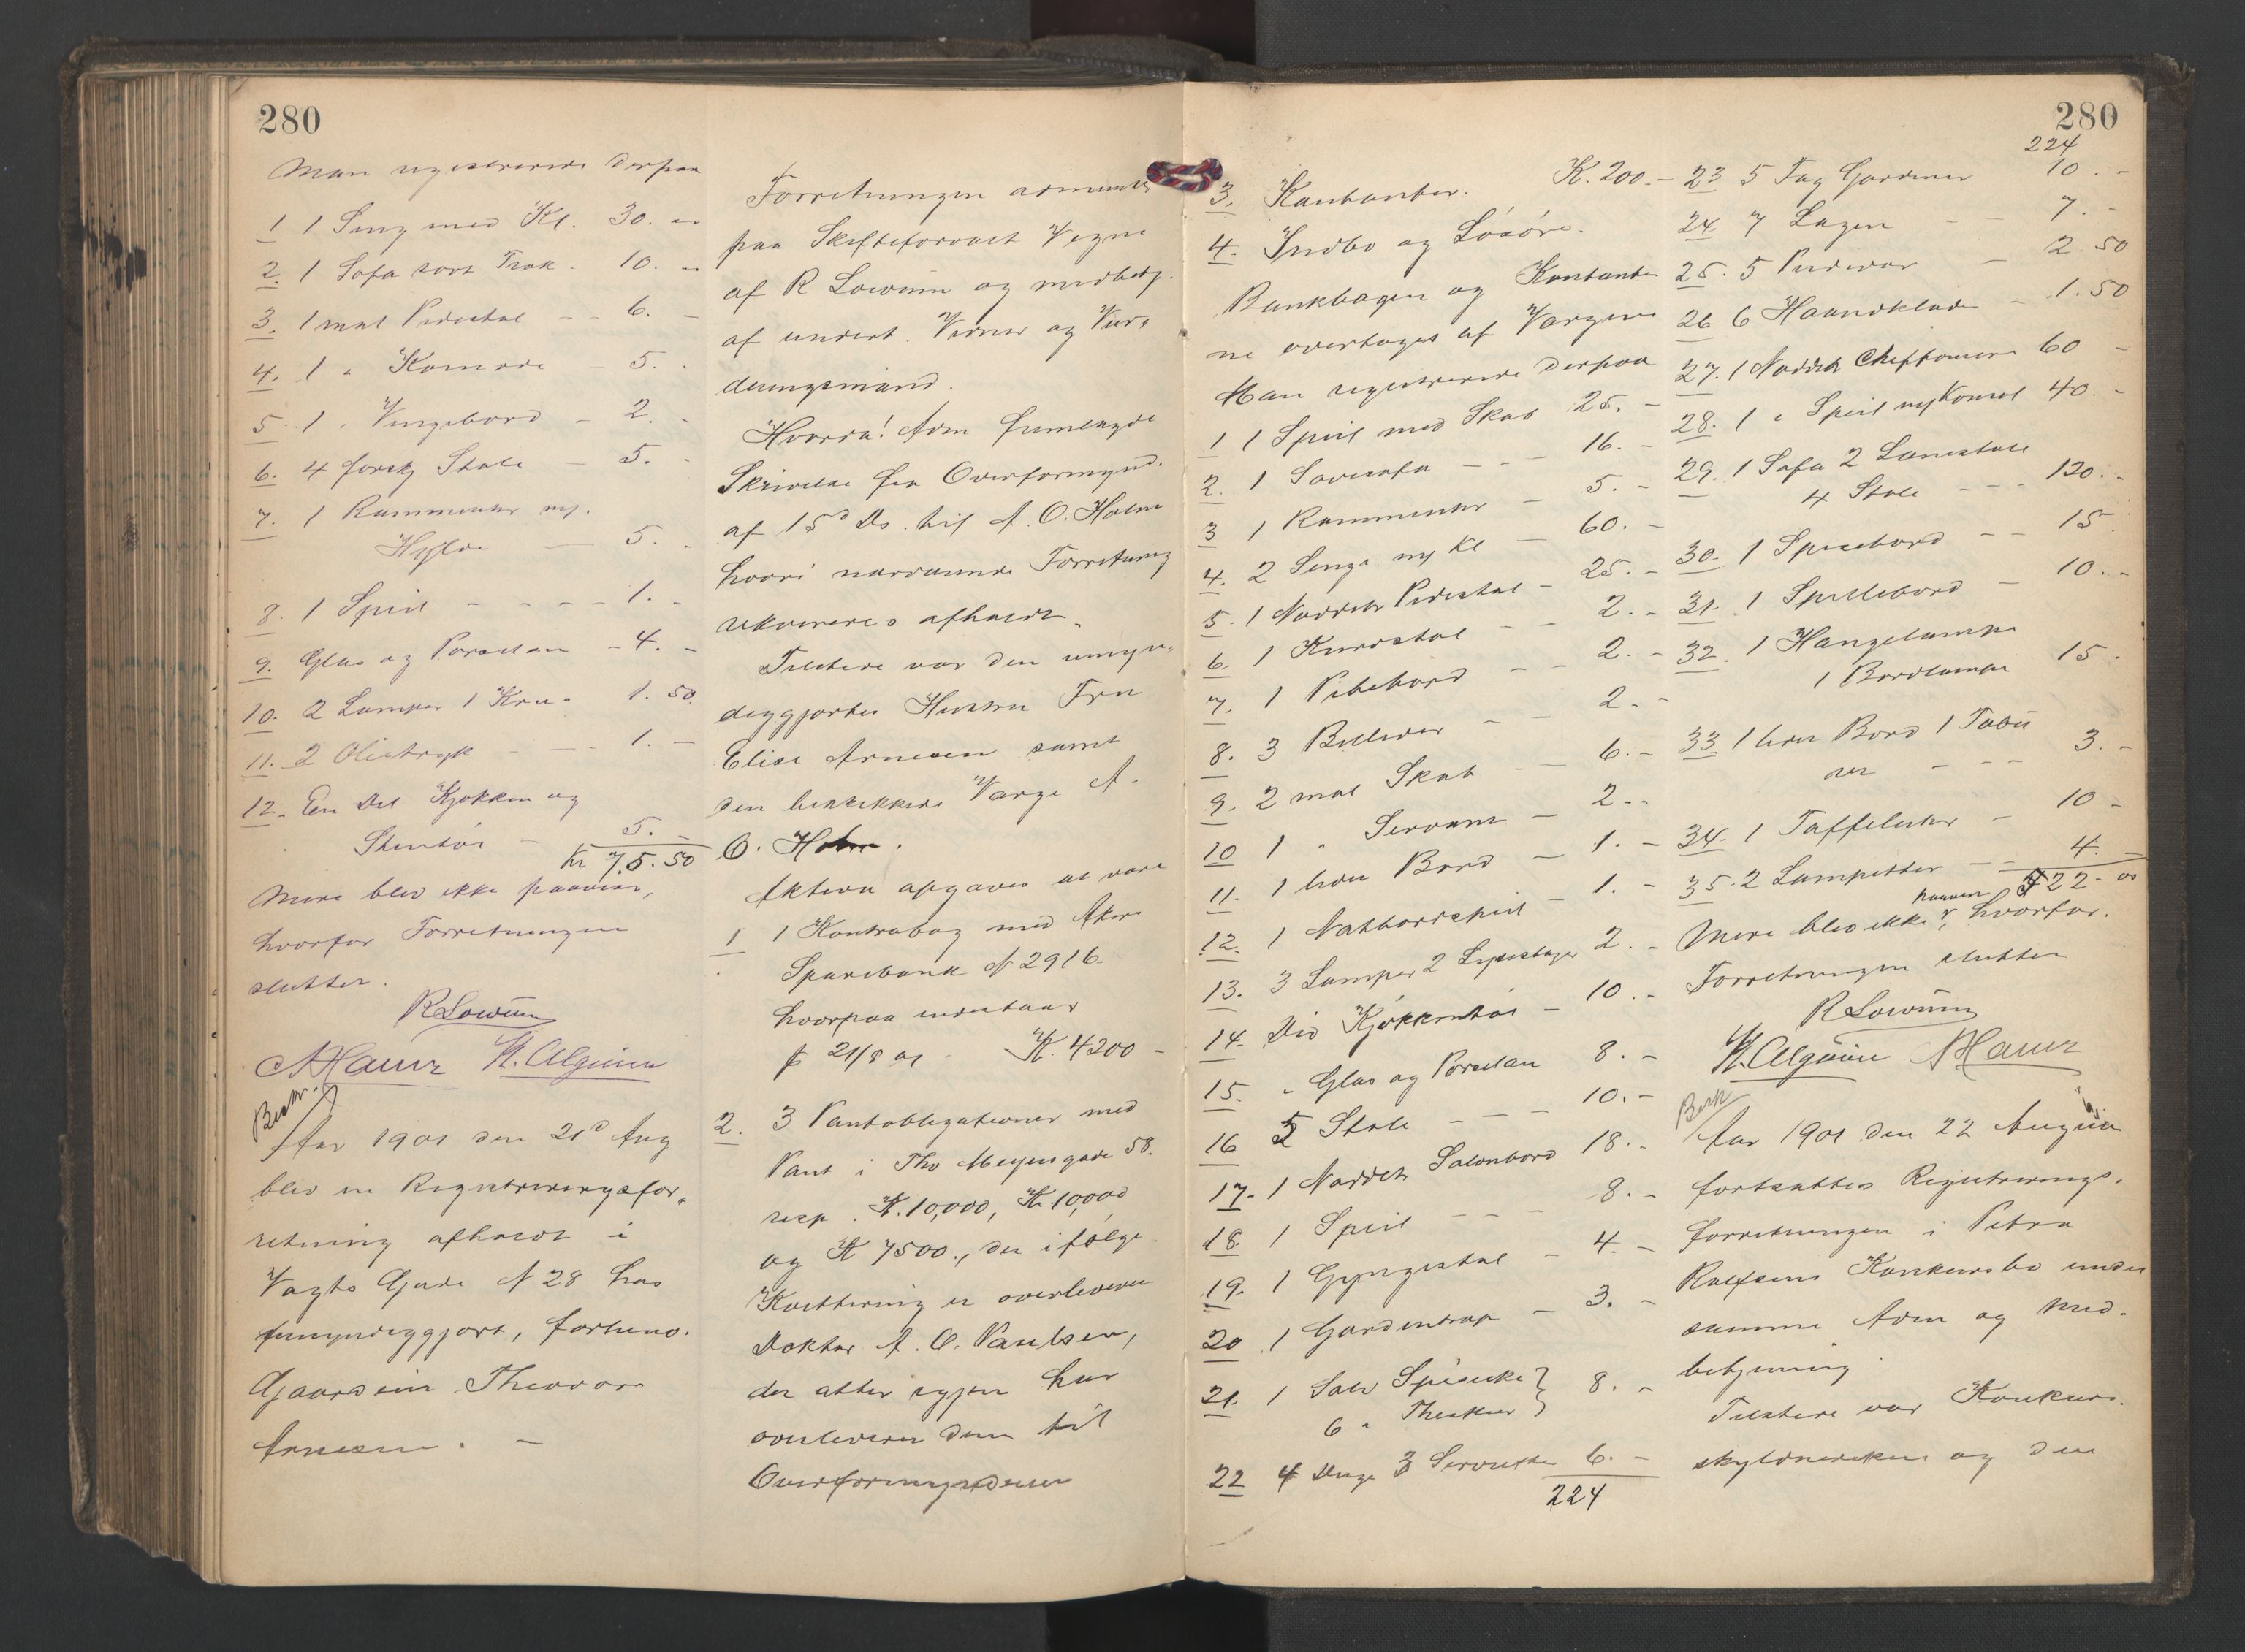 280
Man registrerede derpaa
1 1 Seng med Kl. 30. -
2. 1 Sofa sort Træk - 10. -
3. 1 mal Pidestal - - 6. -
4. 1 " Komode - 5. -
5. 1 " Vingebord - 2. -
6. 4 forskj Stole - 5. -
7. 1 Kammeruhr m/
Hylde - 5. -
8. 1 Speil - - - - 1. -
9. Glas og Porcelæn - 4. -
10. 2 Lamper 1 Kru- 1.50
11. 2 Olietryk - - - 1. -
12. En Del Kjøkken og
Stentøi - 5. -
Kr 75.50
Mere blev ikke paavist,
hvorfor Forretningen
slutter.
RLowum
AHaur H. Algrim
Beskr.
Aar 1901 den 21d Aug
blev en Registreringsfor-
retning afholdt i
Vogts Gade N 28 hos
umyndiggjort, forhenv.
Gaardeier Theodor
Arnesen. -
Forretningen administr
paa Skifteforvalt Vegne
af R Lowum og medbetj.
af undert. Vidner og Vur-
deringsmænd.
Hvorda! Adm fremlagde
Skrivelse fra Overformynd.
af 15d Ds. til A. O. Holm
hvori nærværende Forretning
rekvireres afholdt.
Tilstede var den umyn-
diggjortes Hustru Fru
Elise Arnesen samt
den beskikkede Værge A.
O. Holm.
Aktiva opgaves at være
1 1 Kontrabog med Akers
Sparebank N 2916.
hvorpaa indestaar
p 21/8 01 - K. 4200 -
2. 3 Pantobligationer med
Pant i Thv Meyersgade 58.
resp. K. 10,000, K 10,000
og K 7500., der ifølge
Kvittering er overleveret
Doktor A. O. Paulsen,
der atter igjen har
overleveret dem til
Overformynderiet
280
3. Kontanter. K. 200. -
4. Indbo og Løsøre.
Bankbogen og Kontanter
ne overtoges af Værgen
Man registrerede derpaa
1 1 Speil med Skab 25. -
2. 1 Sovesofa - - - 16. -
3 1 Kammeruhr - 5. -
4. 2 Senge m/ Kl - 60. -
5. 1 Nøddetr Pidestal - 25. -
6. 1 Kurvstol - - 2. -
7. 1 Pibebord - - 2. -
8. 3 Billeder - - 2. -
9. 2 mal Skab - - 6. -
10 1 " Servant - 2. -
11. 1 liden Bord - 1. -
12. 1 Natbordspeil - 1. -
13. 3 Lamper 2 Lysestager 2. -
14. Div Kjøkkentøi - 10. -
15. " Glas og Porcelæn 8. -
16 5 Stole - - - 10. -
17. 1 Nøddetr Salonbord 18. -
18. 1 Speil - - - 8. -
19. 1 Gyngestol - 4. -
20 1 Gardintrap - 3. -
21. 1 Sølv Spiseske } 8. -
6 " Theskeer }
22 4 Duge 3 Servietter 6. -
224
224
23 5 Fag Gardiner 10. -
24. 7 Lagen - - 7. -
25. 5 Pudevar - 2.50
26 6 Haandklæder - 1.50
27. 1 Nøddetr Cheffoniere 60 -
28. 1 " Speil m/Konsol 40. -
29. 1 Sofa 2 Lænestole
4 Stole - - - 120. -
30. 1 Spisebord - - 15
31. 1 Spillebord - 10. -
32. 1 Hængelampe
1 Bordlampe 15 -
33 1 liden Bord 1 Tabu
ret - - - 3. -
34. 1 Taffeluhr - 10 -
35. 2 Lampetter - - 4. -
522-00
Mere blev ikke paavist, hvorfor.
Forretningen slutter
RLowum
H. Algrim AHaur
Besk
Aar 1901 den 22 August
fortsattes Registrerings-
forretningen i Petra
Rolfsens Konkursbo under
samme Adm og Med-
betjening
Tilstede var Konkurs-
skyldnersken og den